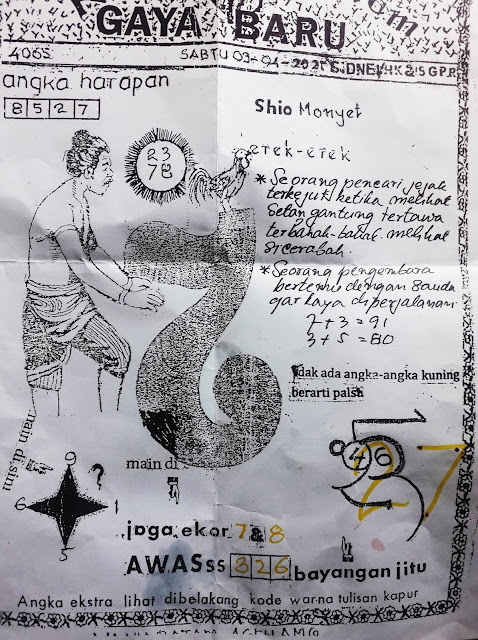 GAYA BARU
406S
SABTU 03-04-2021 SIDNEY HK & SGP.R
angka harapan
8 5 2 7
Shio Monyet
23
78
erek-erek
* Seorang pencari jejak
terkejut ketika melihat
Setan gantung tertawa
terbahak-bahak melihat
si cerabah.
* Seorang pengembara
bertemu dengan Sauda
gar kaya diperjalanan
7+3=91
3+5=80
idak ada angka-angka kuning
berarti palsu
main disini
9
6
1
5
?
main di
4 6
2 7
jaga ekor 7 & 8
AWASss 3 2 6 bayangan jitu
Angka ekstra lihat dibelakang kode warna tulisan kapur